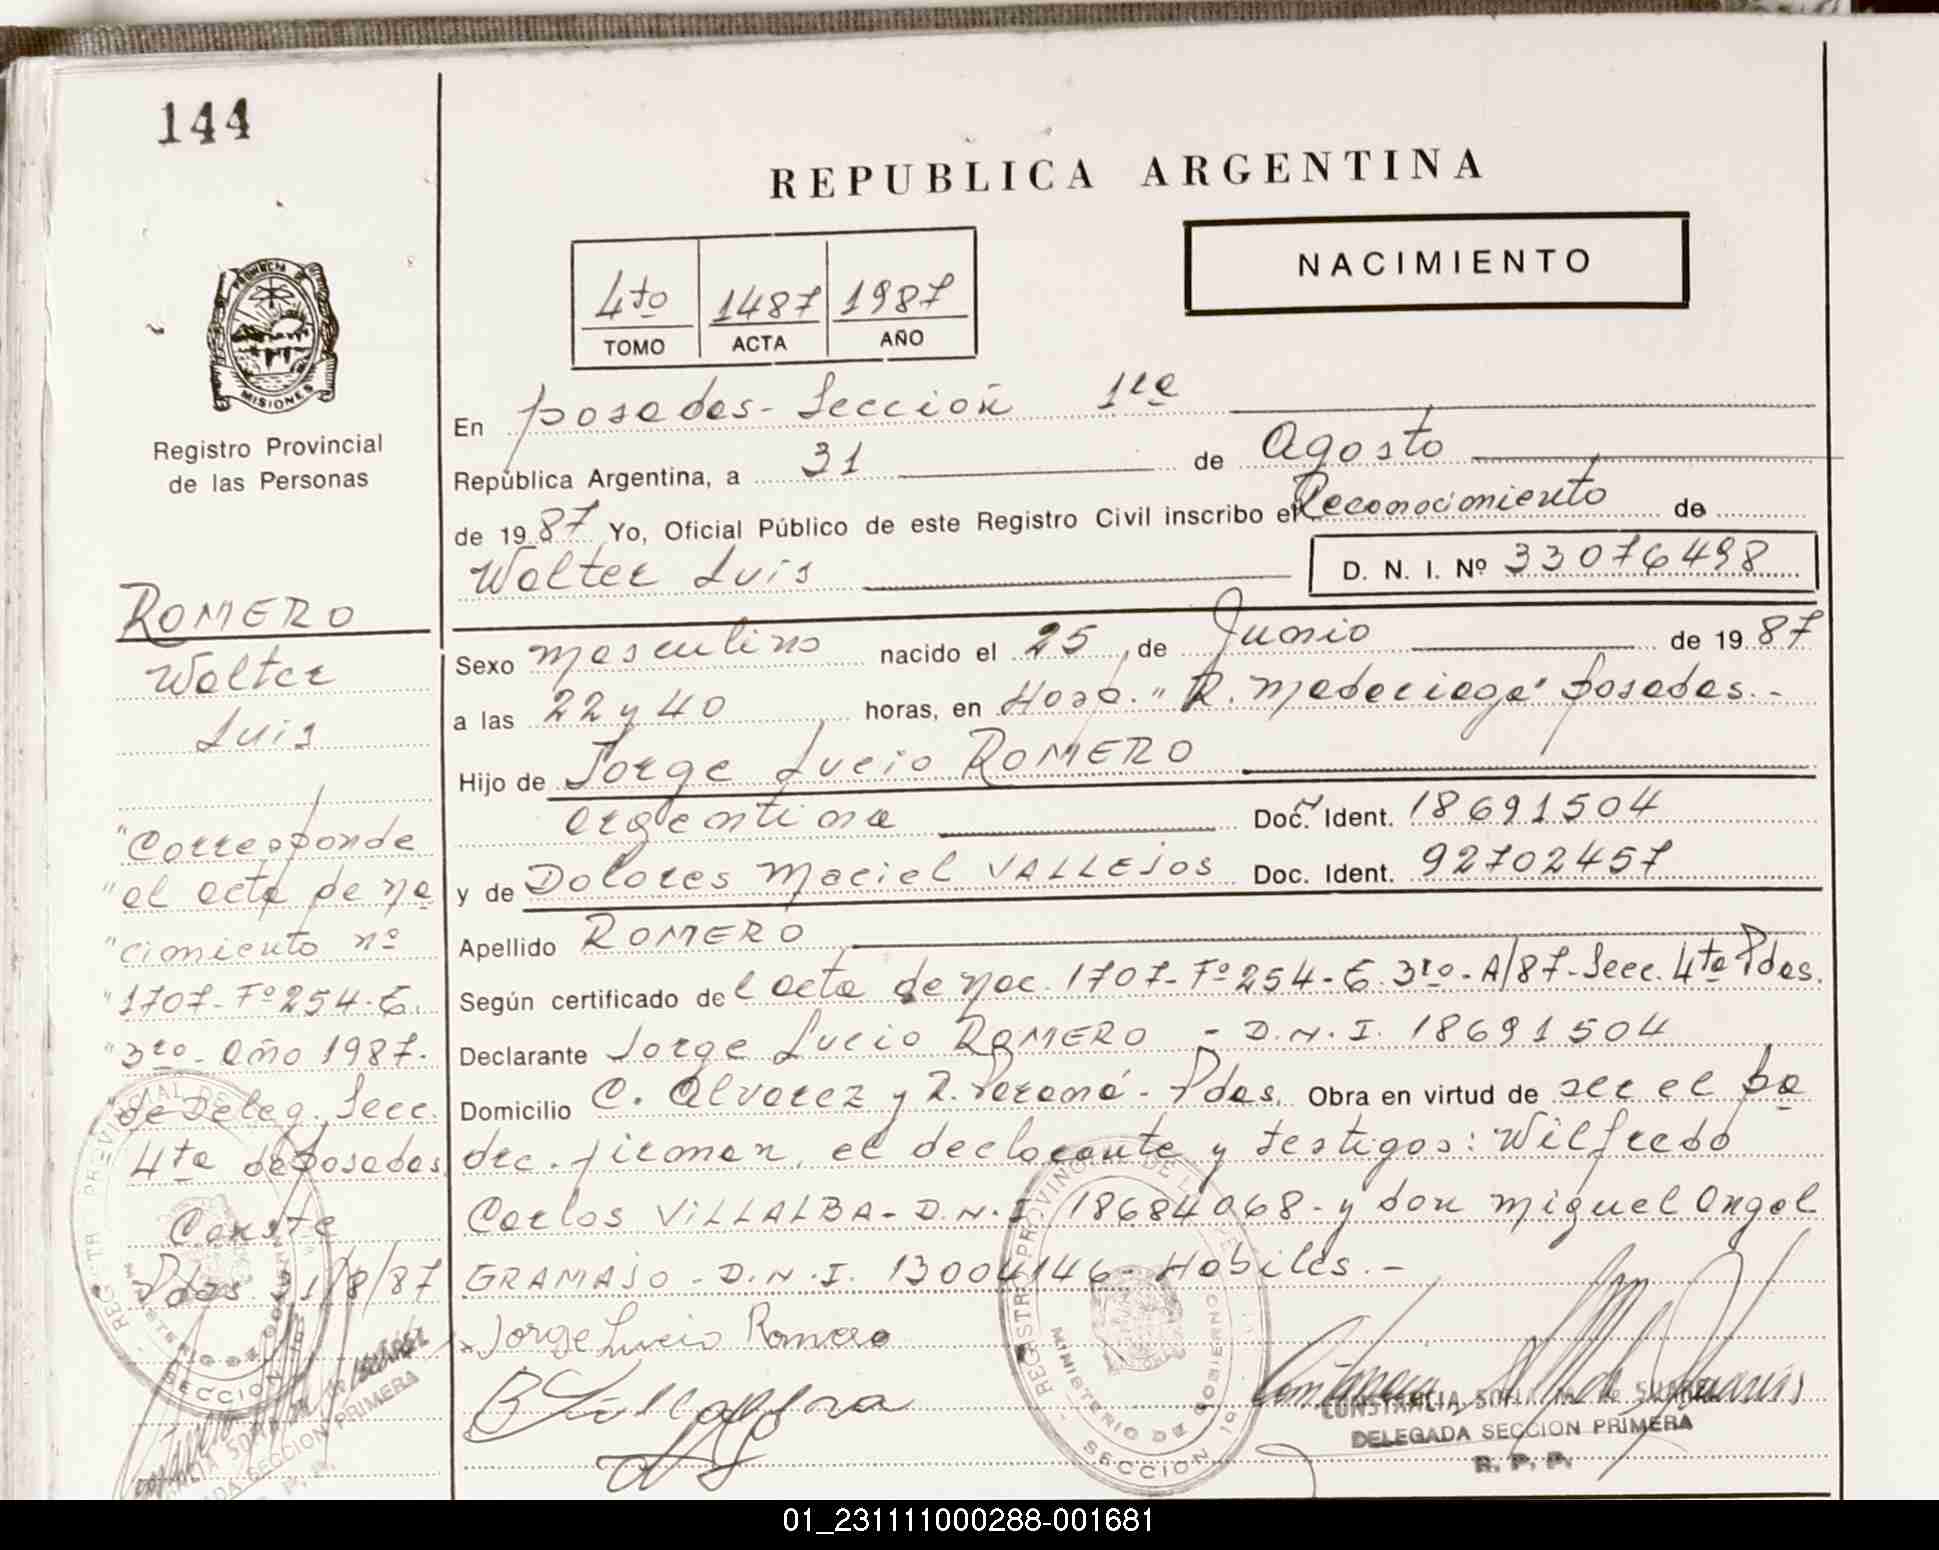 144
REPUBLICA ARGENTINA
NACIMIENTO
4to 1487 1987
TOMO ACTA AÑO
PROVINCIA DE MISIONES
Registro Provincial
de las Personas
En posadas - Sección 1ra
República Argentina, a 31 de Agosto
de 1987 Yo, Oficial Público de este Registro Civil inscribo el Reconocimiento de
Walter Luis D. N. I. Nº 33076498
Sexo masculino nacido el 25, de Junio de 1987
a las 22 y 40 horas, en Hosp. "R. Madariaga" posadas.-
Hijo de Jorge Lucio ROMERO
argentina Doc. Ident. 18691504
y de Dolores Maciel VALLEJOS Doc. Ident. 92702457
Apellido ROMERO
Según certificado del acta de nac. 1707-Fº254-6.3ro-A/87-Secc. 4ta Pdas.
Declarante Jorge Lucio ROMERO - D.N.I. 18691504
Domicilio C. Alvarez y R. Paraná - Pdas. Obra en virtud de ser el pa
dre. firman, el declarante y testigos: Wilfredo
Carlos VILLALBA - D.N.I 18684068 - y don Miguel Angel
GRAMAJO - D.N.I. 13004146 - Habiles. -
Jorge Lucio Romero
CONSTANCIA SOFIA M. de SUAREZ
DELEGADA SECCION PRIMERA
R. P. P.
REGISTRO PROVINCIAL DE LAS
MINISTERIO DE GOBIERNO
SECCION 1a
ROMERO
Walter
Luis
"Corresponde
"al acta de na
"cimiento nº
"1707-Fº254-6.
"3ro-Año 1987.
de Deleg. Secc.
4ta de posadas
Conste
Pdas. 31/8/87
MINISTERIO DE GOBIERNO
SECCION 1a
SECCION PRIMERA
01_231111000288-001681